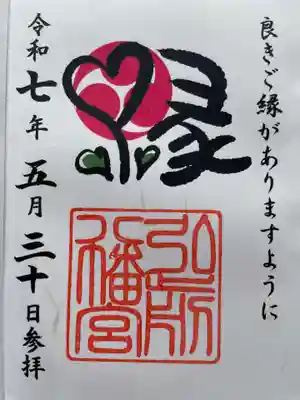 良きご縁がありますように
縁
弘前
八幡宮
令和七年五月三十日参拝